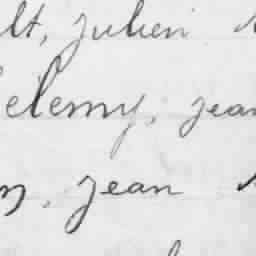 lt, julien
elemy, jean
n, jean